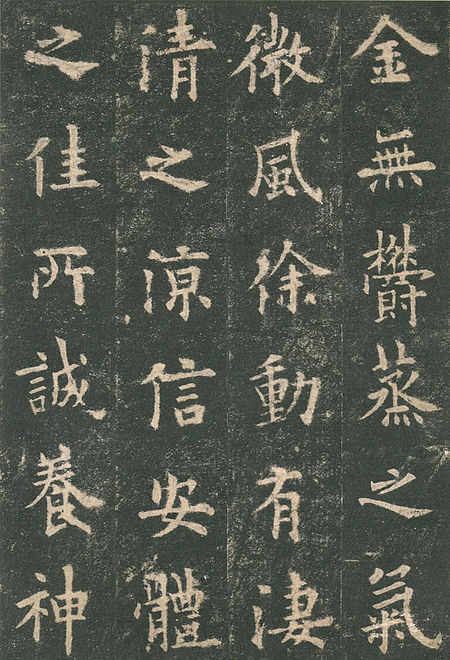 金無欝蒸之氣
微風徐動有淒
清之涼信安體
之佳所誠養神